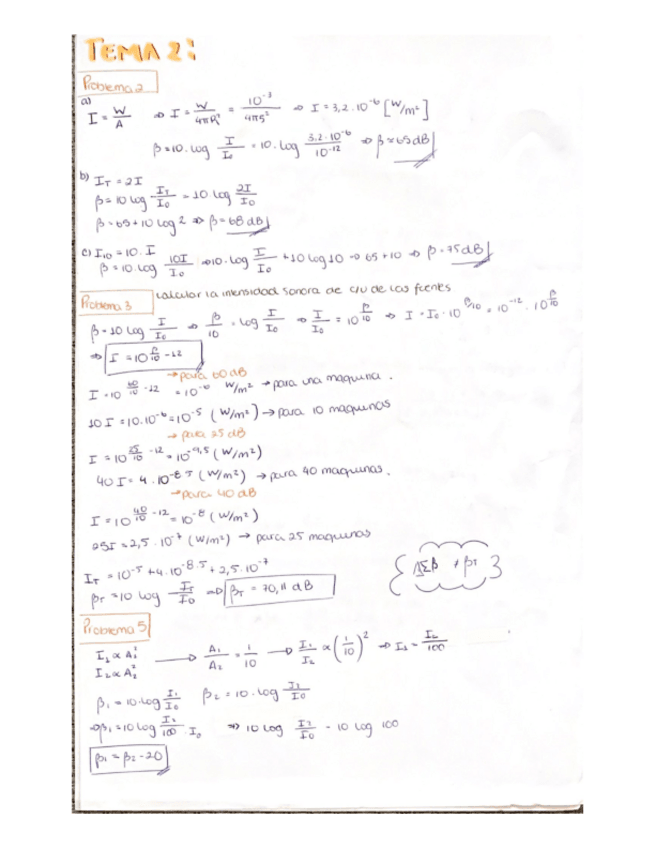 TEMA 2:
Problema 2
a)
I = W/A ⇒ I = W/4πR² = 10⁻³/4π5² ⇒ I = 3,2·10⁻⁶ [W/m²]
β = 10·log I/I₀ = 10·log 3,2·10⁻⁶/10⁻¹² ⇒ β = 65 dB
b) I_T = 2I
β = 10 log I_T/I₀ = 10 log 2I/I₀
β = 65 + 10 log 2 ⇒ β = 68 dB
c) I₁₀ = 10·I
β = 10·log 10I/I₀ ⇒ 10·log I/I₀ + 10 log 10 ⇒ 65 + 10 ⇒ β = 75 dB
Problema 3 calcular la intensidad sonora de c/u de las fuentes
β = 10 log I/I₀ ⇒ β/10 = log I/I₀ ⇒ I/I₀ = 10^(β/10) ⇒ I = I₀·10^(β/10) = 10⁻¹²·10^(β/10)
⇒ I = 10^(β/10 - 12)
→ para 60 dB
I = 10^(60/10 - 12) = 10⁻⁶ W/m² → para una maquina.
10I = 10·10⁻⁶ = 10⁻⁵ (W/m²) → para 10 maquinas
→ para 25 dB
I = 10^(25/10 - 12) = 10^(-9,5) (W/m²)
40I = 4·10^(-8,5) (W/m²) → para 40 maquinas.
→ para 40 dB
I = 10^(40/10 - 12) = 10⁻⁸ (W/m²)
25I = 2,5·10⁻⁷ (W/m²) → para 25 maquinas
I_T = 10⁻⁵ + 4·10^(-8.5) + 2,5·10⁻⁷
β_T = 10 log I_T/I₀ ⇒ β_T = 70,11 dB
Σβ ≠ β_T
Problema 5
I₁ ∝ A₁²
I₂ ∝ A₂² → A₁/A₂ = 1/10 → I₁/I₂ ∝ (1/10)² ⇒ I₁ = I₂/100
β₁ = 10·log I₁/I₀ β₂ = 10·log I₂/I₀
⇒ β₁ = 10 log I₂/100·I₀ ⇒ 10 log I₂/I₀ - 10 log 100
β₁ = β₂ - 20